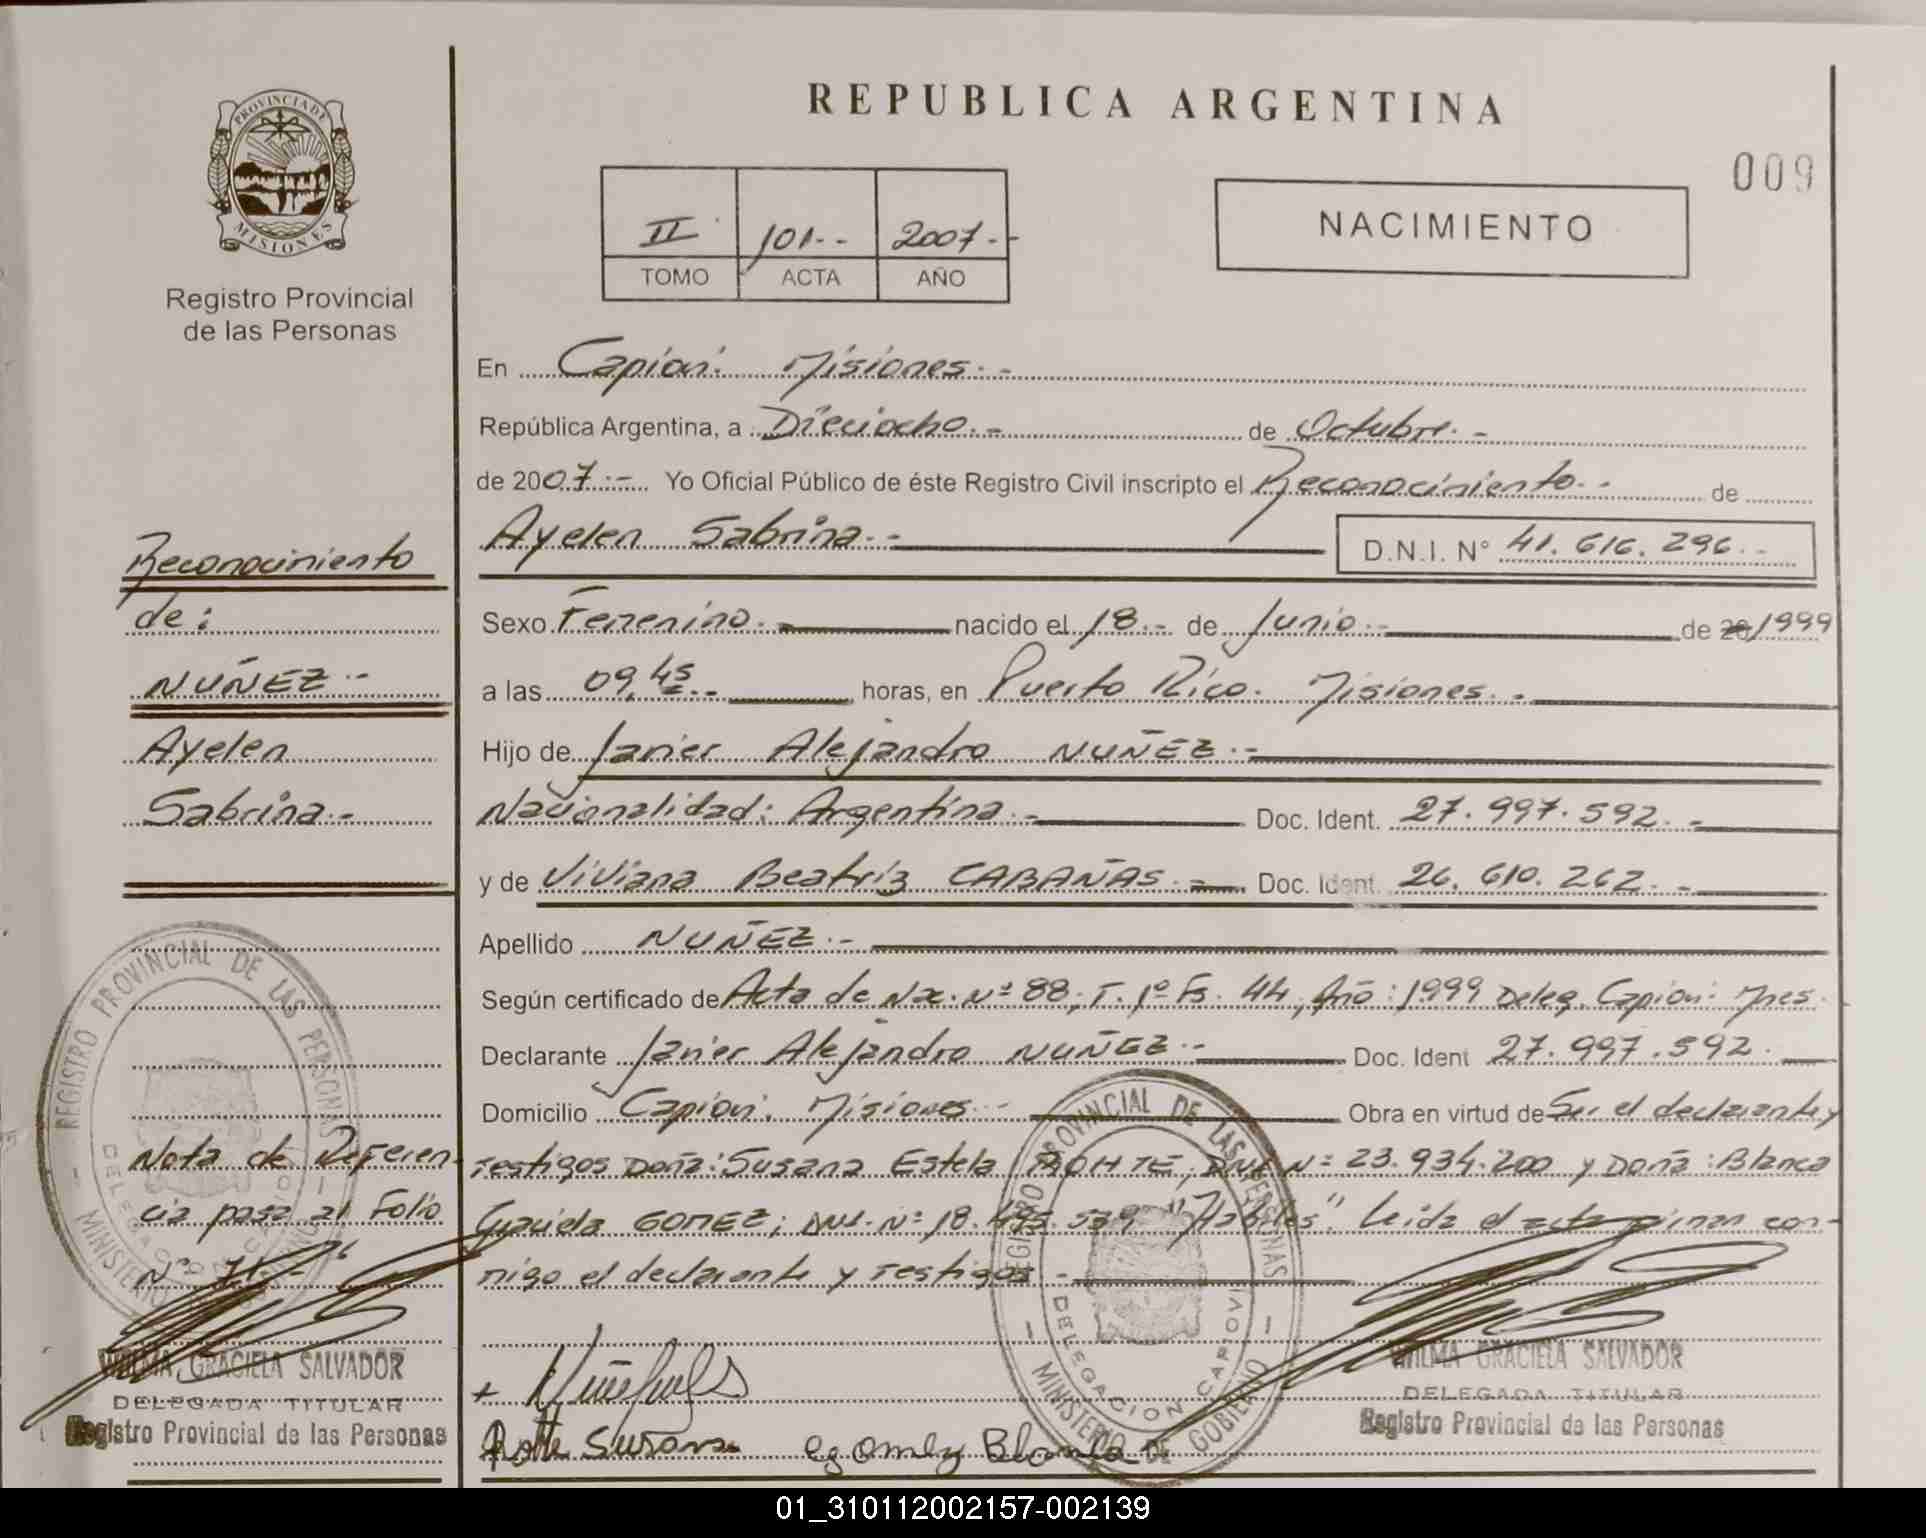 PROVINCIA DE
MISIONES
Registro Provincial
de las Personas
REPUBLICA ARGENTINA
009
II 101.- 2007.-
TOMO ACTA AÑO
NACIMIENTO
En Capiovi. Misiones.-
República Argentina, a Dieciocho.- de Octubre.-
de 2007.- Yo Oficial Público de éste Registro Civil inscripto el Reconocimiento.- de
Ayelen Sabrina.- D.N.I. N° 41.616.296.-
Sexo Femenino.- nacido el 18.- de Junio.- de 20 1999
a las 09,45.- horas, en Puerto Rico. Misiones.-
Hijo de Javier Alejandro NUÑEZ.-
Nacionalidad: Argentina.- Doc. Ident. 27.997.592.-
y de Viviana Beatriz CABAÑAS.- Doc. Ident. 26.610.262.-
Apellido NUÑEZ.-
Según certificado de Acta de Nac. Nº 88; T. 1º Fs. 44, Año: 1999 Deleg. Capiovi. Mnes.
Declarante Javier Alejandro NUÑEZ.- Doc. Ident 27.997.592.
Domicilio Capiovi. Misiones.- Obra en virtud de Ser el declarante y
Testigos Doña: Susana Estela DNI. Nº 23.934.200 y Doña: Blanca
Graciela GOMEZ; DNI. Nº 18. "Habiles". Leida el acta firman con-
migo el declarante y testigos.-
Reconocimiento
de:
NUÑEZ.-
Ayelen
Sabrina.-
Nota de Referen-
cia pasa al Folio
Nº
REGISTRO PROVINCIAL DE LAS PERSONAS
DELEGACION CAPIOVI
MINISTERIO DE GOBIERNO
WILMA GRACIELA SALVADOR
DELEGADA TITULAR
Registro Provincial de las Personas
REGISTRO PROVINCIAL DE LAS PERSONAS
DELEGACION CAPIOVI
MINISTERIO DE GOBIERNO
Susana Blanca
WILMA GRACIELA SALVADOR
DELEGADA TITULAR
Registro Provincial de las Personas
01_310112002157-002139